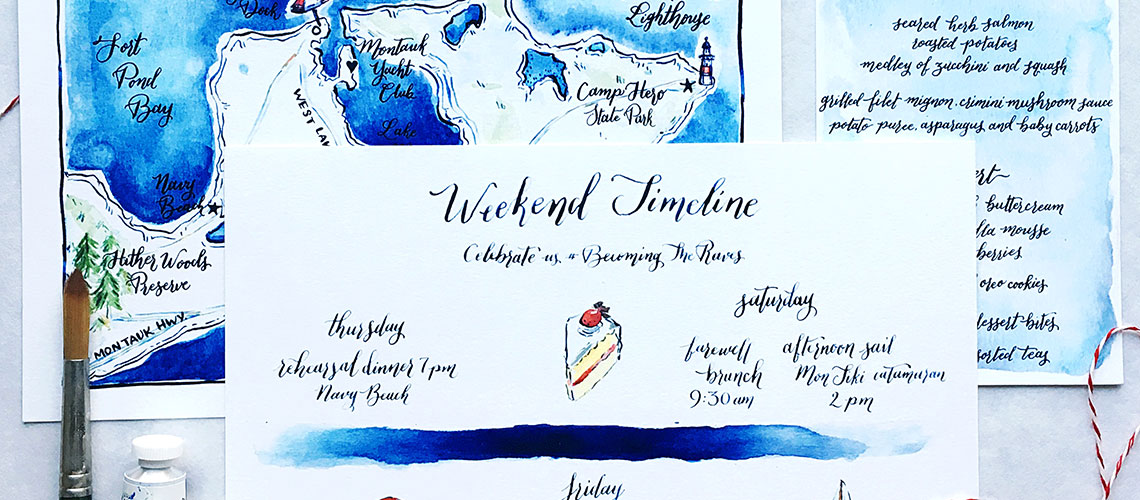 Dock
Fort
Pond
Bay
Montauk
Yacht
Club
Lake
WEST LAK
Lighthouse
Camp Hero
State Park
Navy
Beach
Hither Woods
Preserve
MONTAUK HWY
seared herb salmon
roasted potatoes
medley of zucchini and squash
grilled filet mignon, crimini mushroom sauce
potato puree, asparagus and baby carrots
buttercream
mousse
berries
oreo cookies
dessert bites
teas
Weekend Timeline
Celebrate us # Becoming The Raves
thursday
rehearsal dinner 7 pm
Navy Beach
saturday
farewell
brunch
9:30 am
afternoon sail
Mon Tiki catamaran
2 pm
friday